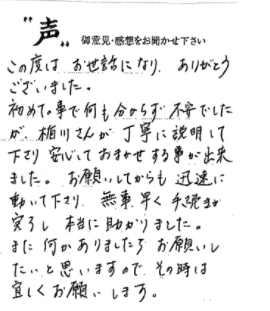 "声" 御意見・感想をお聞かせ下さい
この度は お世話になり、ありがとう
ございました。
初めての事で何も分からず不安でした
が、楯川さんが丁寧に説明して
下さり安心しておまかせする事が出来
ました。お願いしてからも迅速に
動いて下さり、無事早く手続きが
完了し本当に助かりました。
また何かありましたらお願いし
たいと思いますので、その時は
宜しくお願いします。